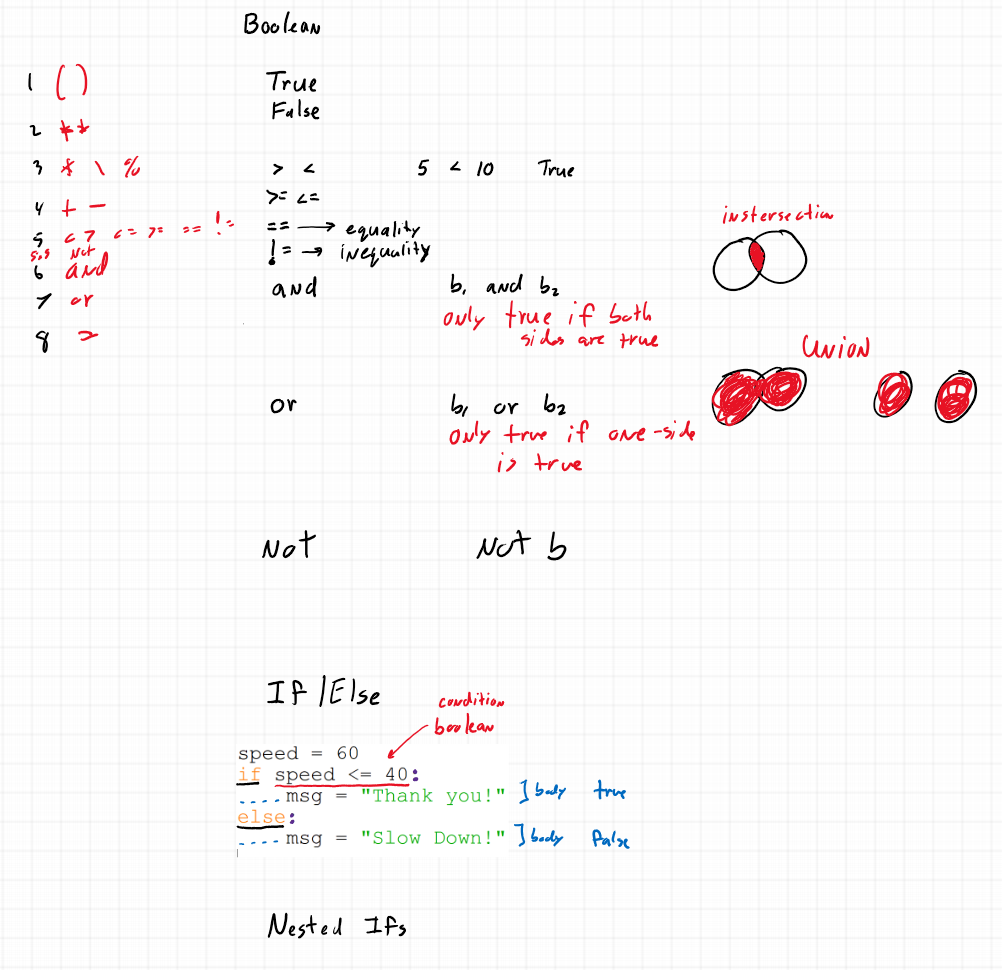 Boolean
1 ( )
2 **
3 * \ %
4 + -
5 < > <= >= == !=
5.5 Not
6 and
7 or
8 =
True
False
> < 5 < 10 True
>= <=
== → equality
!= → inequality
and b₁ and b₂
only true if both
sides are true
instersection
Union
or b₁ or b₂
only true if one-side
is true
Not Not b
If/Else
condition
boolean
speed = 60
if speed <= 40:
....msg = "Thank you!" ] body true
else:
....msg = "Slow Down!" ] body false
Nested Ifs